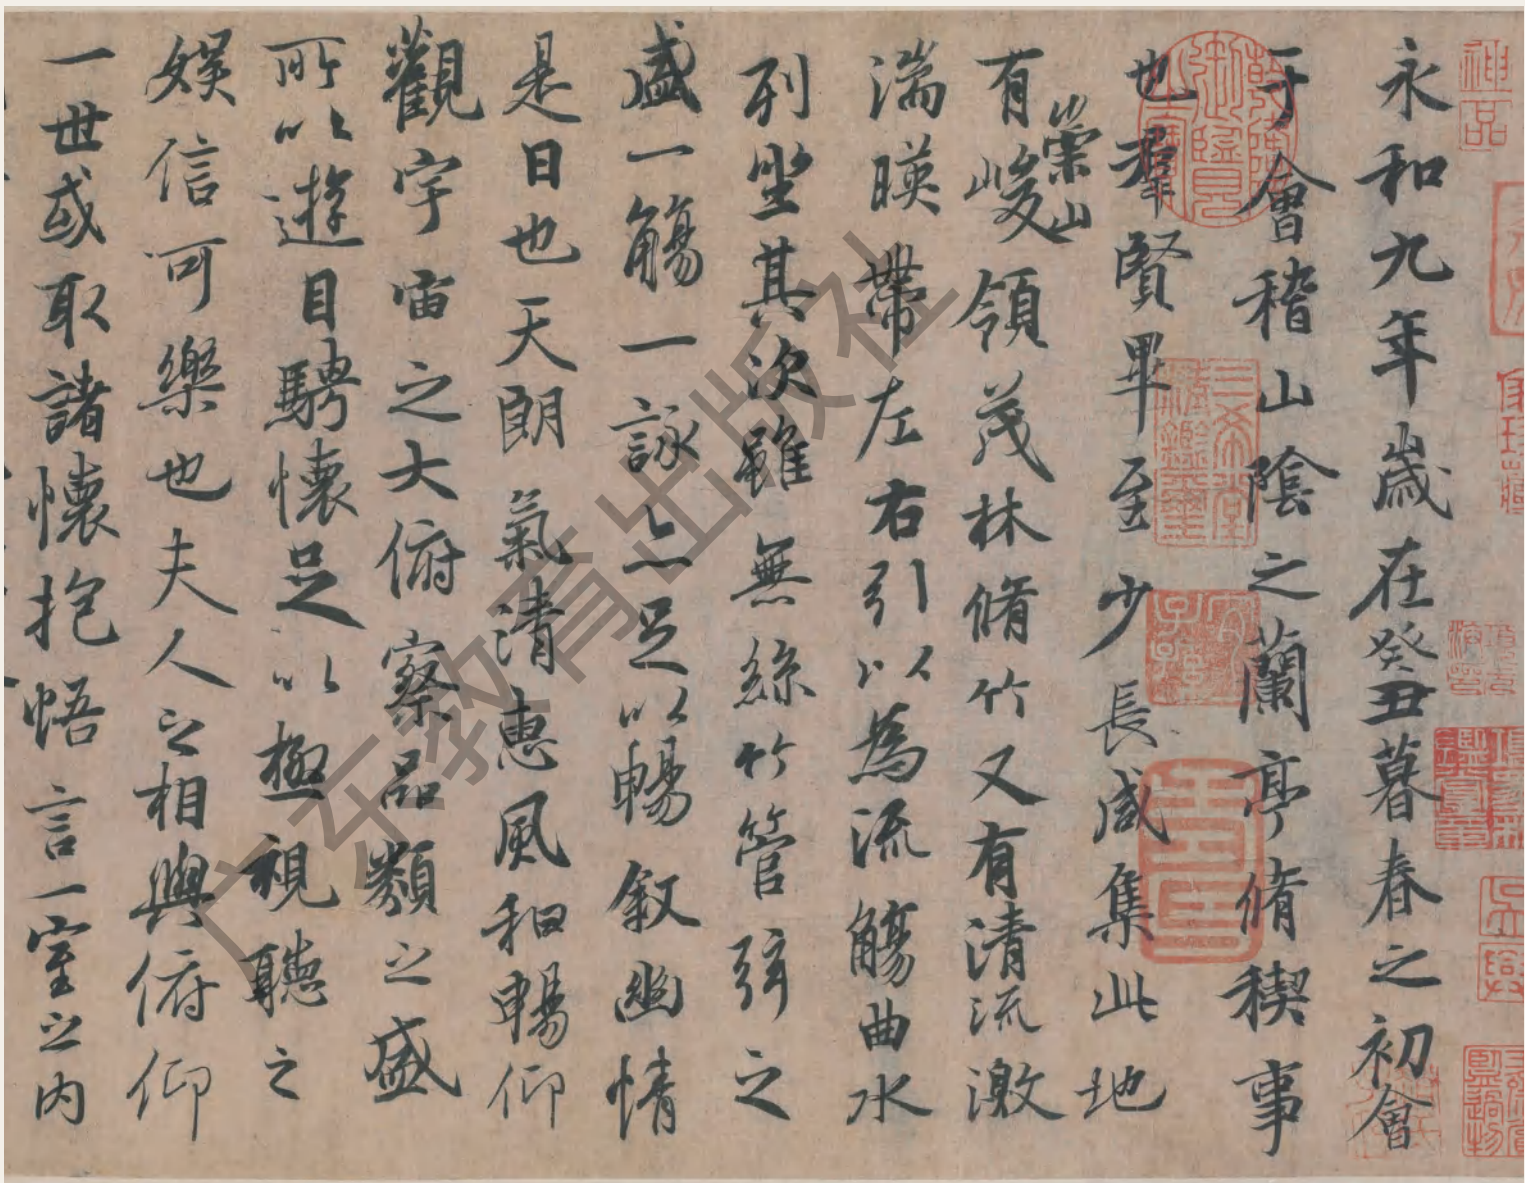 永和九年歲在癸丑暮春之初會
于會稽山陰之蘭亭脩稧事
也羣賢畢至少長咸集此地
有崇山峻領茂林脩竹又有清流激
湍暎帶左右引以為流觴曲水
列坐其次雖無絲竹管弦之
盛一觴一詠亦足以暢敘幽情
是日也天朗氣清惠風和暢仰
觀宇宙之大俯察品類之盛
所以遊目騁懷足以極視聽之
娛信可樂也夫人之相與俯仰
一世或取諸懷抱悟言一室之內
廣东教育出版社
神品
三希堂精鑑璽
宜子孫